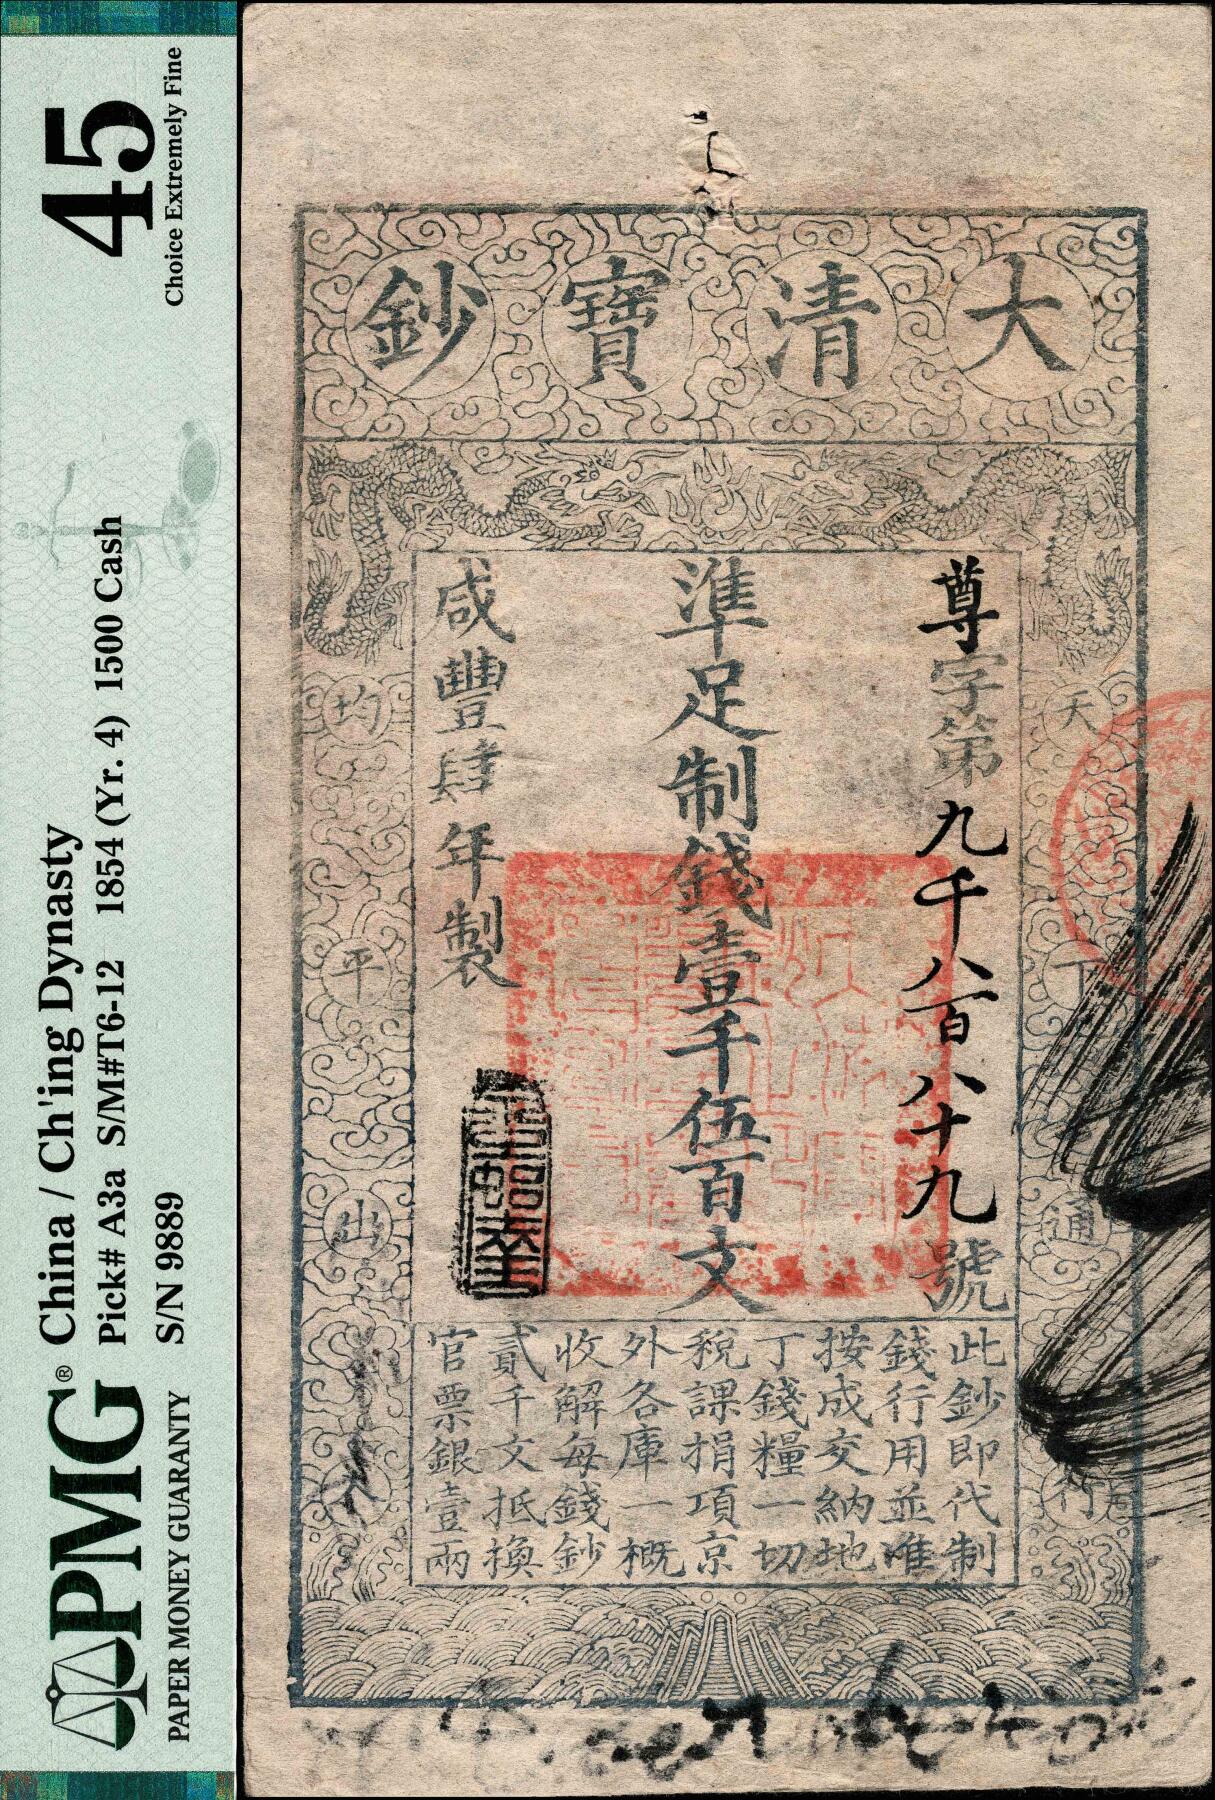 PMG®
PAPER MONEY GUARANTY
China / Ch'ing Dynasty
Pick# A3a S/M#T6-12 1854 (Yr. 4) 1500 Cash
S/N 9889
45
Choice Extremely Fine
大清寶鈔
天下通行
均平出入
尊字第九千八百八十九號
準足制錢壹千伍百文
咸豐肆年製
此鈔即代制
錢行用並準
按成交納地
丁錢糧一切
稅課捐項京
外各庫一概
收解每錢鈔
貳千文抵換
官票銀壹兩